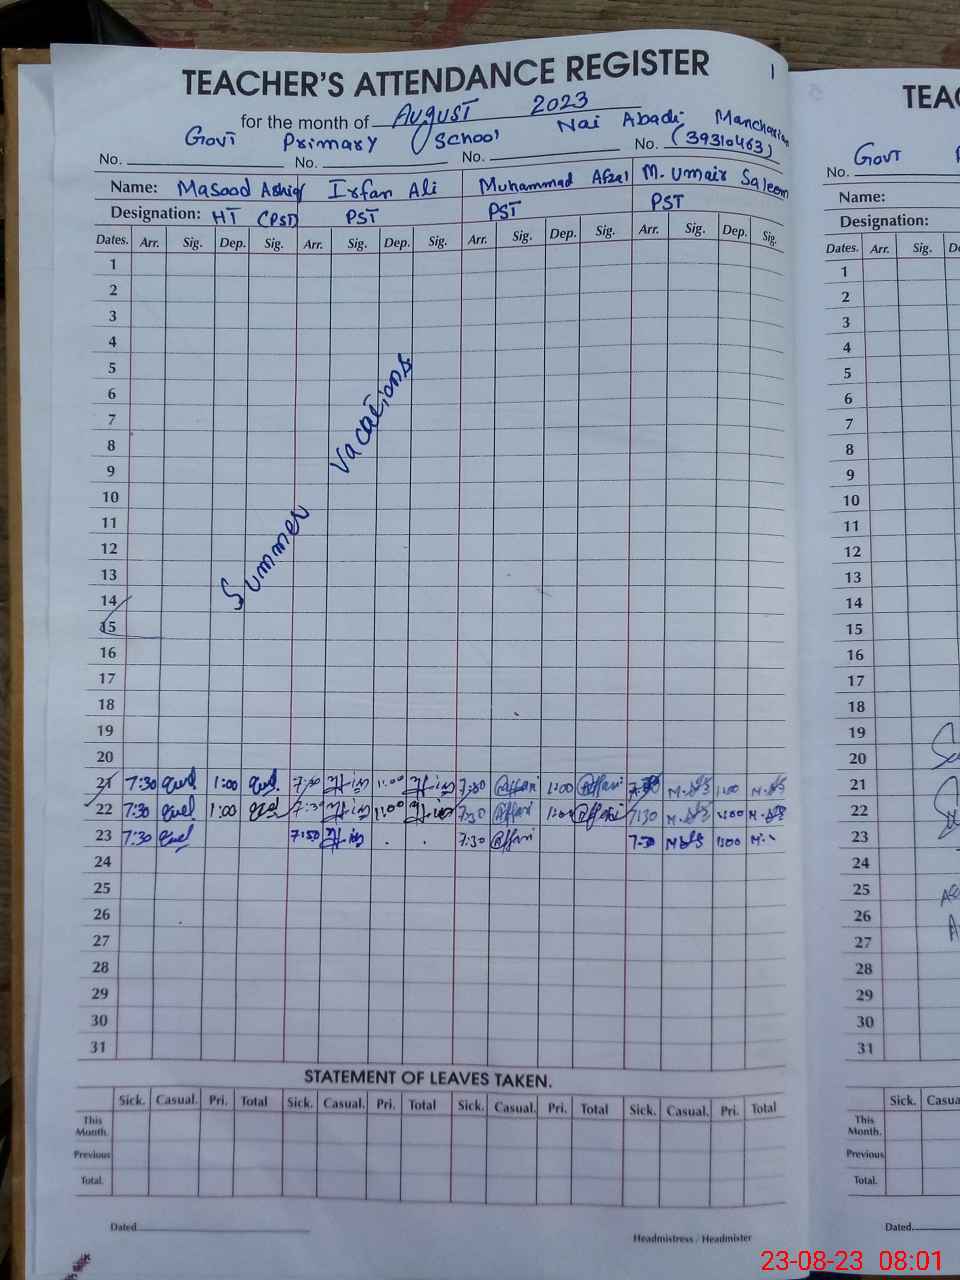 TEACHER'S ATTENDANCE REGISTER 1
for the month of August 2023
Govt Primary School Nai Abadi Mancharian
No. No. No. No. (39310463)
Name: Masood Ashiq Irfan Ali Muhammad Afzal M. Umair Saleem
Designation: HT (PST) PST PST PST
Dates. Arr. Sig. Dep. Sig. Arr. Sig. Dep. Sig. Arr. Sig. Dep. Sig. Arr. Sig. Dep. Sig.
1
2
3
4
5
6
7
8
9
10
11
12
13
14
15
16
17
18
19
20
Summer Vacations
21 7:30 1:00 7:30 1:00 7:30 1:00 1:00
22 7:30 1:00 7:30 1:00 7:30 1:00 7:30 1:00
23 7:30 7:30 7:30 7:30 1:00
24
25
26
27
28
29
30
31
STATEMENT OF LEAVES TAKEN.
Sick. Casual. Pri. Total Sick. Casual. Pri. Total Sick. Casual. Pri. Total Sick. Casual. Pri. Total
This Month.
Previous
Total.
Dated
Headmistress / Headmister
TEAC
Govt
No.
Name:
Designation:
Dates. Arr. Sig. De
1
2
3
4
5
6
7
8
9
10
11
12
13
14
15
16
17
18
19
20
21
22
23
24
25
26
27
28
29
30
31
Sick. Casua
This Month.
Previous
Total.
Dated.
23-08-23 08:01